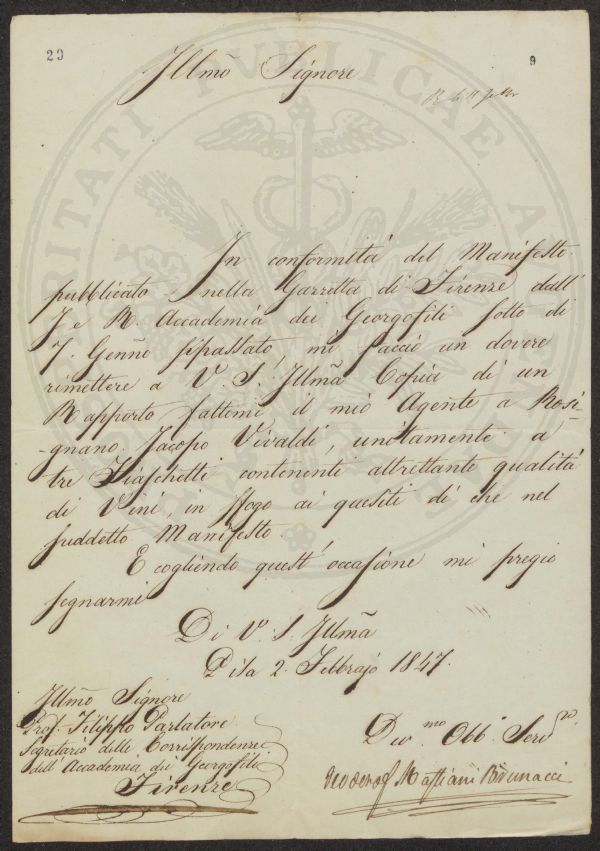 29
9
Illmo Signore
In conformità del Manifesto
pubblicato nella Gazzetta di Firenze dall'
I e R. Accademia dei Georgofili sotto dì
7. Genno. sipassato, mi faccio un dovere
rimettere a V. S. Illma Copia di un
Rapporto fattomi il mio Agente a Rosi-
-gnano Jacopo Vivaldi, unitamente a
tre Fiaschetti contenenti altrettante qualità
di Vini, in sfogo ai quesiti di che nel
suddetto Manifesto.
E cogliendo quest'occasione mi pregio
segnarmi
Di V. S. Illma
Pisa 2. Febbrajo 1847.
Illmo Signore
Prof. Filippo Parlatore
Segretario delle Corrispondenze
dell'Accademia dei Georgofili
Firenze
Dev.mo Obb. Serv.re
Mastiani Brunacci
PUBLICAE